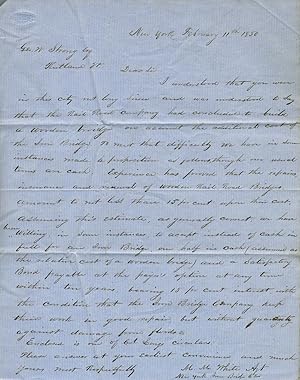 New York February 11th 1850
Geo. W. Strong Esq
Rutland Vt.
Dear Sir
I understood that you were
in this city not long since and was understood to say
that the Rail Road Company had concluded to build
a wooden bridge on account the additional cost of
the Iron Bridge. To meet that difficulty We have in some
instances made a proposition as follows though our usual
terms are cash. Experience has proved that the repairs,
insurance and renewal of wooden Rail Road Bridges
amount to not less than 15 pr cent upon their cost.
Assuming this estimate, as generally correct we have been
Willing, in some instances to accept instead of cash in
full for an Iron Bridge one half in cash, (assumed as
the relative cost of a wooden bridge) and a Satisfactory
Bond payable at the payer's option at any time
within ten years bearing 15 pr cent interest with
the condition that the Iron Bridge Company keep
their work in good repair but without guaranty
against damage from floods.
Enclosed is one of our Long's circulars.
Please answer at your earliest convenience and much
yours most Respectfully M. M. White Agt
New York Iron Bridge Co.